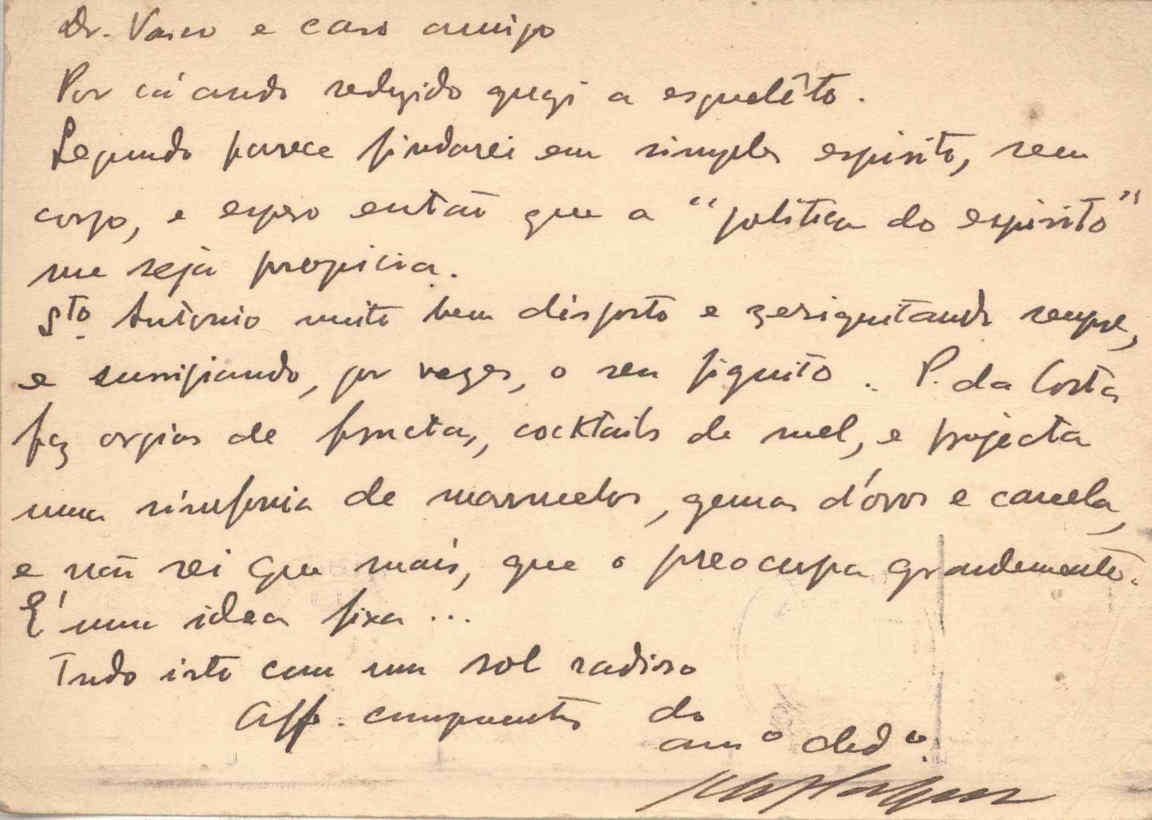 Dr. Vasco e caro amigo
Por cá ando reduzido quazi a esqueleto.
Segundo parece findarei em simples espirito, sem
corpo, e espero então que a "politica do espirito"
me seja propicia.
Sto. Antonio muito bem disposto e zeriquitando sempre,
e surripiando, por vezes, o seu figuito. P. da Costa
faz orgias de fructas, cocktails de mel, e projecta
uma sinfonia de marmelos, gemas d'óvos e canela,
e não sei que mais, que o preocupa grandemente.
É uma idea fixa...
Tudo isto com um sol radioso
Aff. cumprimentos do
amº dedº.